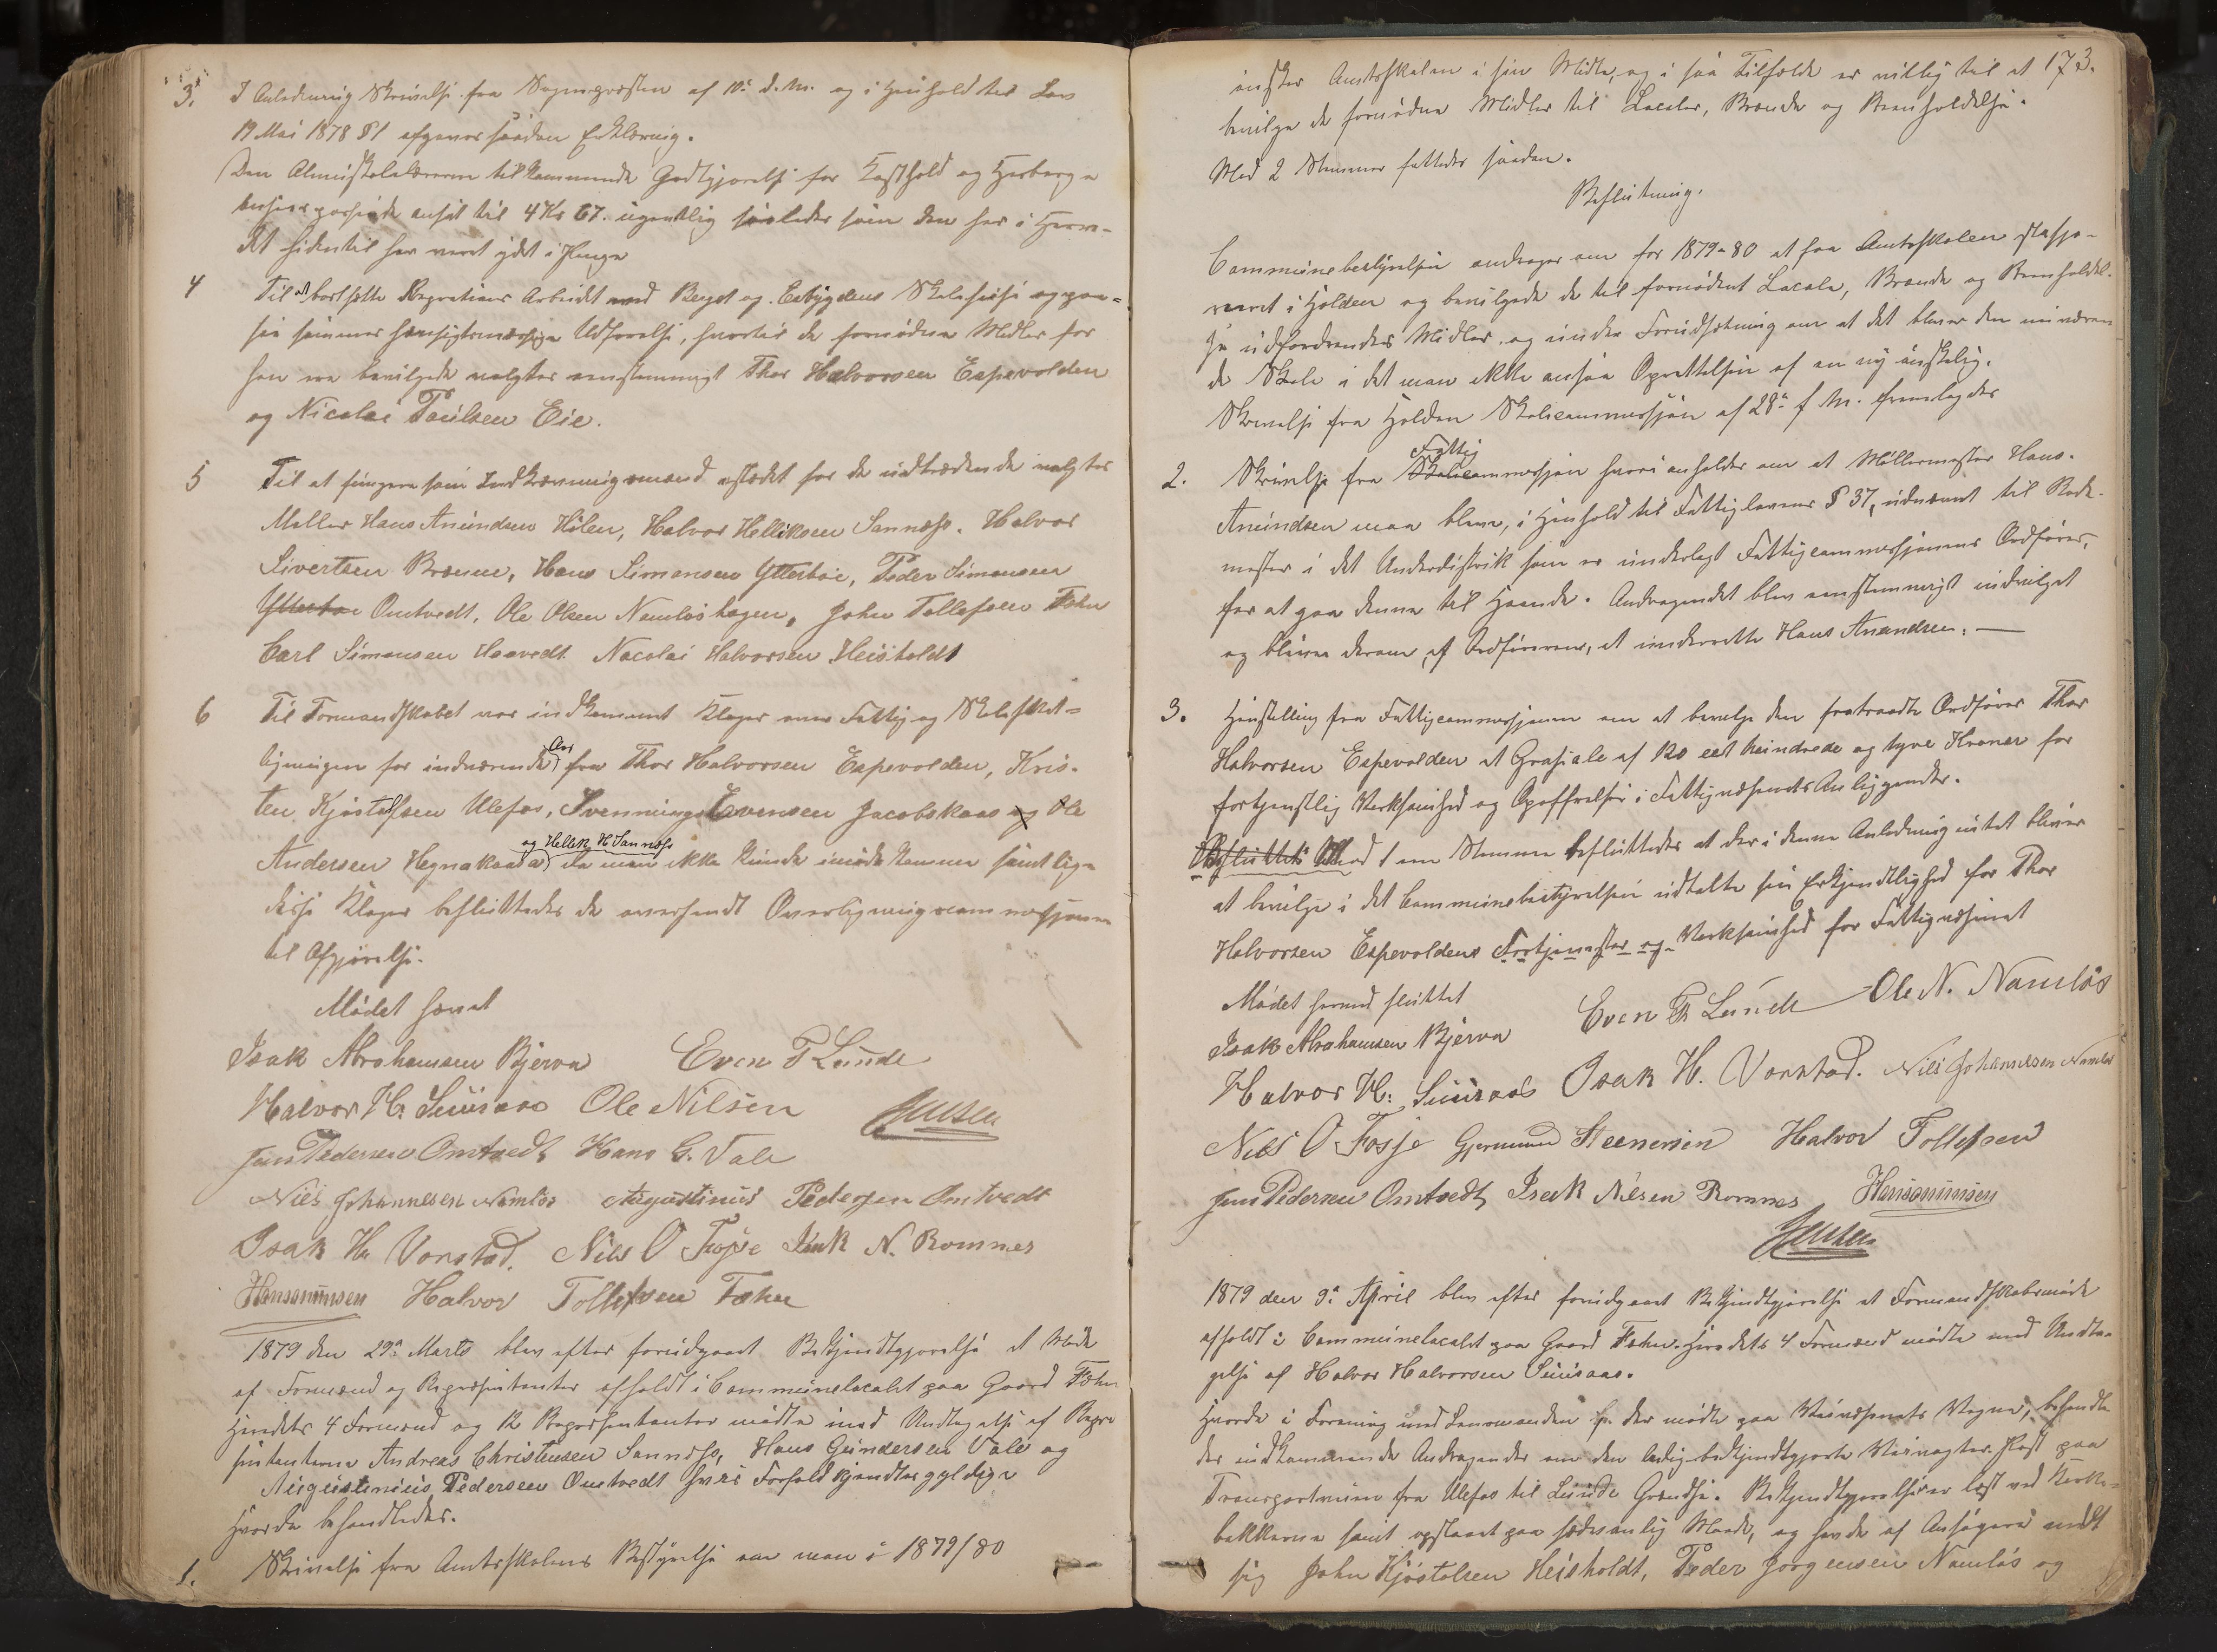 3. I Anledning Skrivelse fra Sognepræsten af 10de d. M. og i Henhold til Lov
19 Mai 1878 § 1 afgaves saadan Erklæring.
Den Almueskolelærerne tilkommende Godtgjørelse for Kosthold og Herberge
ansat til 4 Kr 67. ugentlig saaledes som den her i Herre-
det hidentil har været ydet i Penge
4 Til at bortsætte Reprations Arbeidet med Berget og Eebygdens Skolehuse og paa-
see sammes hensigtsmæssige Udførelse, hvortil de fornødne Midler for
hen var bevilgede valgtes eenstemmigt Thor Halvorsen Espevolden
og Nicolai Paulsen Eie.
5 Til at fungere som Indkrævningsmænd istedet for de udtrædende valgtes
Møller Hans Amundsen Hølen, Halvor Helliksen Sannæss. Halvor
Sivertsen Brenne, Hans Simonsen Ytterbøe, Peder Simonsen
Ytterbøe Omtvedt, Ole Olsen Namløshagen, John Tollefsen Fæhn
Carl Simonsen Haavedt Nacolai Halvorsen Heisholdt
6 Til Formandskabet var indkommet Klager over Fattig og Skoleskat-
ligningen for indværende Aar fra Thor Halvorsen Espevolden, Kris-
ten Kjøstolfsen Ulefos, Svennung Evensen Jacobskaas og Ole
og Hellik H Sannæss
Andersen Hegnakaasa da man ikke kunde imødekomme samtlige
disse Klager besluttedes de oversendt Overligningscommissjonen
til Afgjørelse.
Mødet hævet
Isak Abrahamsen Bjerva Even T Lunde
Halvor H. Suusaas Ole Nilsen Jensen
Jens Pedersen Omtvedt Hans G. Vale
Niels Johannesen Namløs Augustinus Pedersen Omtvedt
Isak H. Vonstad. Niels O Fosse Isak N. Romnes
Hans Simonsen Halvor Tollefsen Fæhn
1879 den 29de Marts blev efter forudgaaet Bekjendtgjørelse et Møde
af Formænd og Repræsentanter afholdt i Communelocalet paa Gaard Fæhn
Herredets 4 Formænd og 12 Repræsentanter mødte med Undtagelse af Repræ
sentanterne Andreas Christensen Sannæss, Hans Gundersen Vale og
Augustinius Pedersen Omtvedt hvis Forfald kjendtes gyldige
Hvorda behandledes.
1. Skrivelse fra Amtsskolens Bestyrelse om man i 1879/80
173.
ønsker Amtsskolen i sin Midte, og i saa Tilfælde er villig til at
bevilge de fornødne Midler til Localer, Brænde og Renholdelse.
Med 2 Stemmer fattedes saadan.
Beslutning.
Communebestyrelsen andrager om for 1879-80 at faa Amtsskolen stasjo-
neret i Holden og bevilgede de til fornødent Locale, Brænde og Renholdel-
se udfordrendes Midler, og under Forudsætning om at det bliver den nuværen
de Skole i det man ikke ansaa Oprettelsen af en ny ønskelig.
Skrivelse fra Holden Skolecommissjon af 28de f M. fremlagdes
Fattig
2. Skrivelse fra Skolecommissjon hvori anholdes om at Møllermester Hans
Amundsen maa blive, i Henhold til Fattiglovens § 37, udnævnt til Rode-
mester i det Underdistrik som er underlagt Fattigcommissjonens Ordfører,
for at gaa denne til Haande. Andragendet blev eenstemmigt indvilget
og bliver derom, af Ordføreren, at underrette Hans Amundsen. —
3. Henstilling fra Fattigcommissjonen om at bevilge den fratraadte Ordfører Thor
Halvorsen Espevolden et Grasiale af 120 eet hundrede og tyve Kroner for
fortjenstlig Verksomhed og Opoffrelser i Fattigvæsenets Anliggender.
Besluttet Mod 1 en Stemme besluttedes at der i denne Anledning intet bliver
at bevilge i det Communebestyrelsen udtalte sin Erkjendtlighed for Thor
Halvorsen Espevoldens Fortjenester og Verksomhed for Fattigvæsenet
Mødet hermed sluttet
Isak Abrahamsen Bjerva Even T Lunde Ole N. Namløs
Halvor H. Suusaas Isak H. Vonstad. Niels Johannesen Namløs
Niels O Fosse Gjermund Steenersen Halvor Tollefsen
Jens Pedersen Omtvedt Isak Nilsen Romnes Hans Simonsen
Jensen
1879 den 9de April blev efter forudgaaet Bekjendtgjørelse et Formandskabsmøde
afholdt i Communelocalet paa Gaard Fæhn. Herredets 4 Formænd mødte med Undta-
gelse af Halvor Halvorsen Suusaas.
Hvorda i Forening med Lensmanden som der mødte paa Veivæsenets Vegne, behandle
des indkommende Andragender om den ledig bekjendtgjorte Veivogter Post paa
Transportveien fra Ulefos til Lunde Grændse. Bekjendtgjørelsen er læst ved Kirke-
bakkerne samt opslaaet paa sædvanlig Maade, og havde af Ansøgere meldt
sig John Kjøstolsen Heisholdt, Peder Jørgensen Namløs og